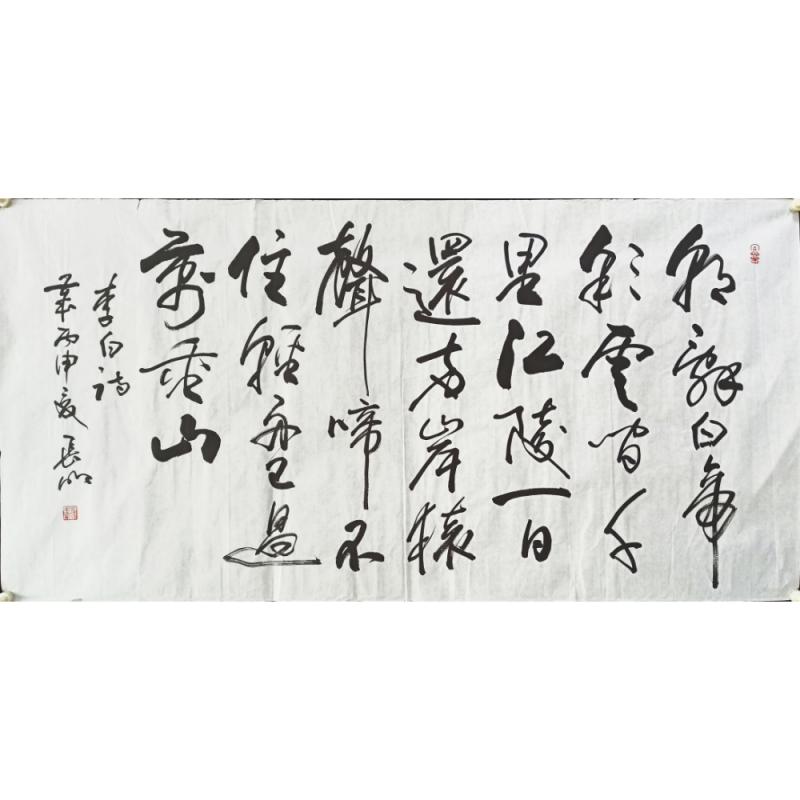 朝辭白帝
彩雲間千
里江陵一日
還兩岸猿
聲啼不
住輕舟已過
萬重山
李白詩
歲丙申夏